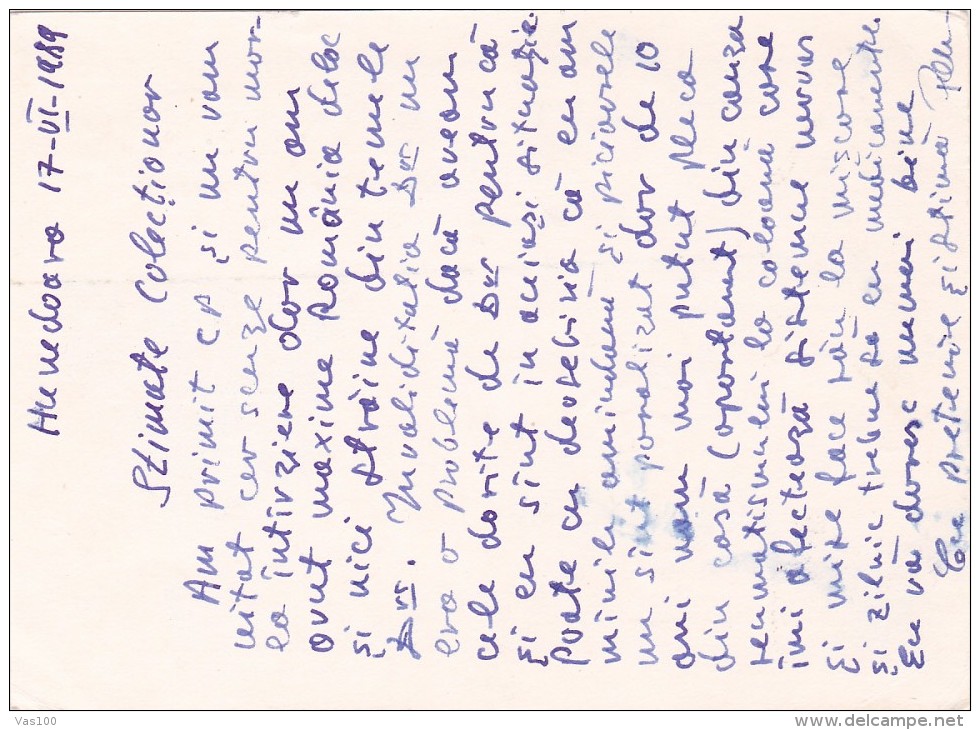 Hunedoara 17-VI-1989
Stimate Colecționar
Am primit CP și nu v-am
uitat cer scuze pentru mor-
la întîrziere dor nu am
avut maxime România deloc
și nici străine din temele
Dvs. Invaliditatia Dvs nu
era o problemă dacă aveam
cele dorite de Dvs pentru că
și eu sînt în aceiași situație.
Poate cu deosebirea că eu am
mîinile amîndouă și picioarele
nu sînt paralizat dor de 10
ani nam mai putut pleca
din casă (apartament) din cauza
reumatismului la coloană care
îmi afectează sistemul nervos
și mite face rău la miscare
și zilnic trebuie să eu medicamente.
Eu vă doresc numai bine
Cu prețuire și stimă
Vas100
www.delcampe.net